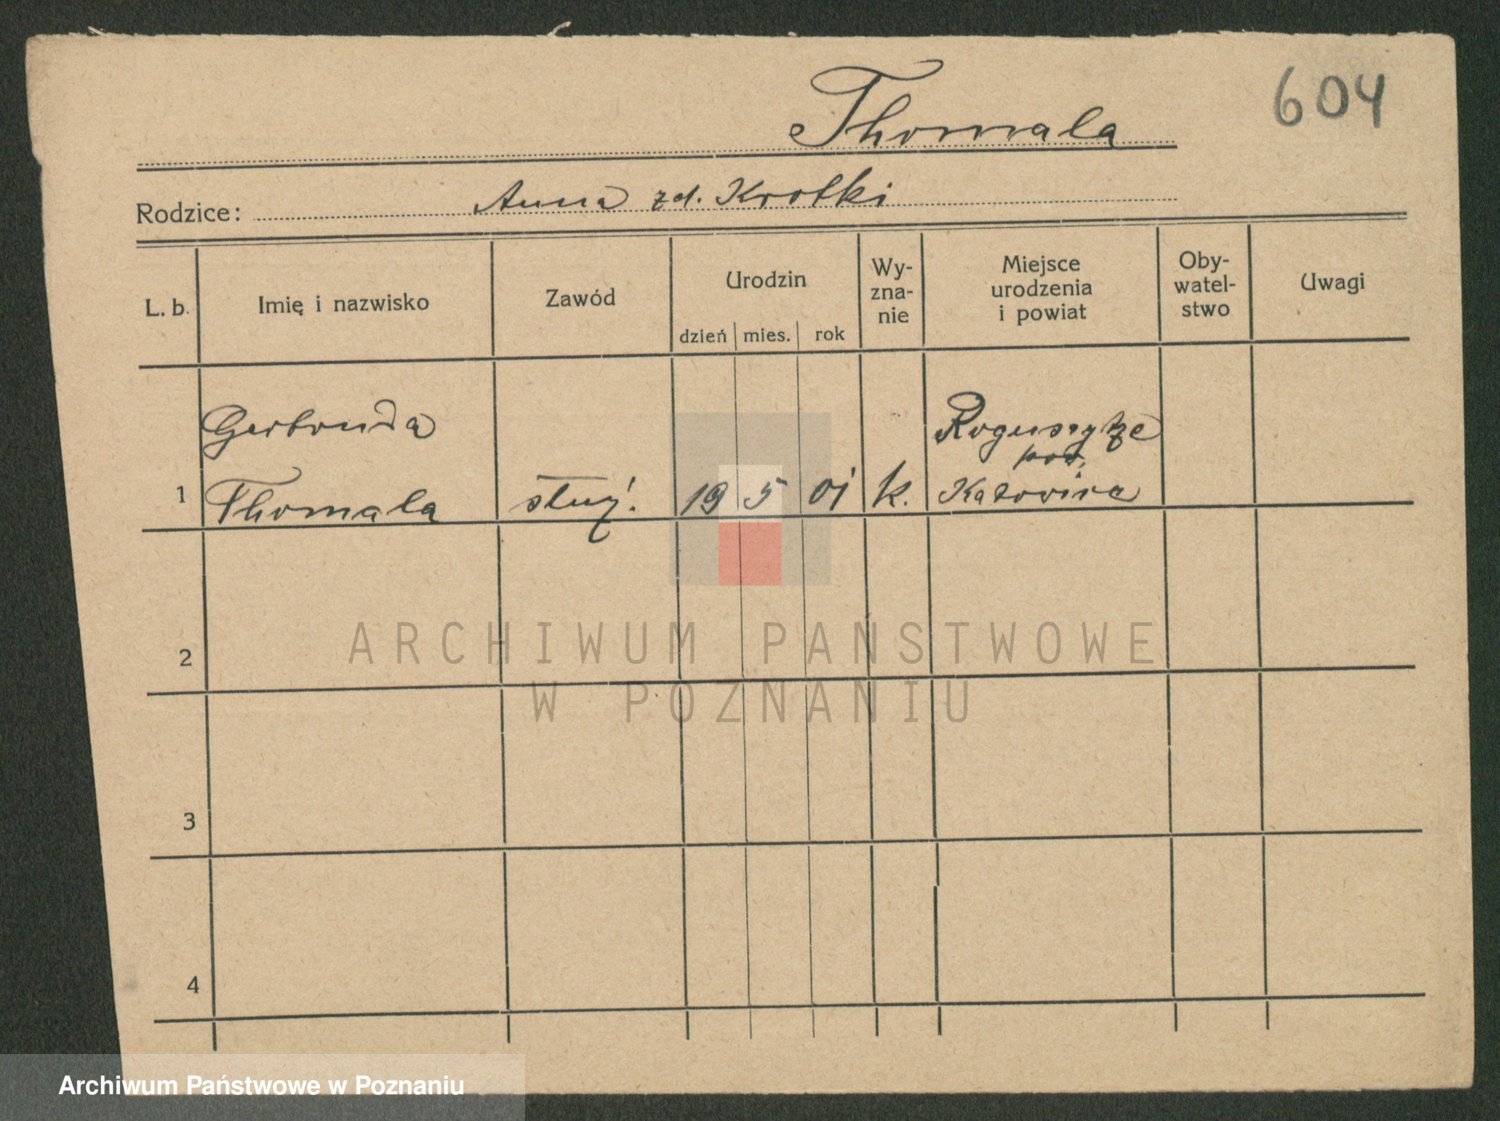 604
Thomala
Rodzice: Anna zd. Krotki
L. b.
Imię i nazwisko
Zawód
Urodzin
dzień mies. rok
Wy-
zna-
nie
Miejsce
urodzenia
i powiat
Oby-
watel-
stwo
Uwagi
Gertruda
1 Thomala służ. 19 5 01 k.
pow.
2
3
4
ARCHIWUM PAŃSTWOWE
W POZNANIU
Archiwum Państwowe w Poznaniu